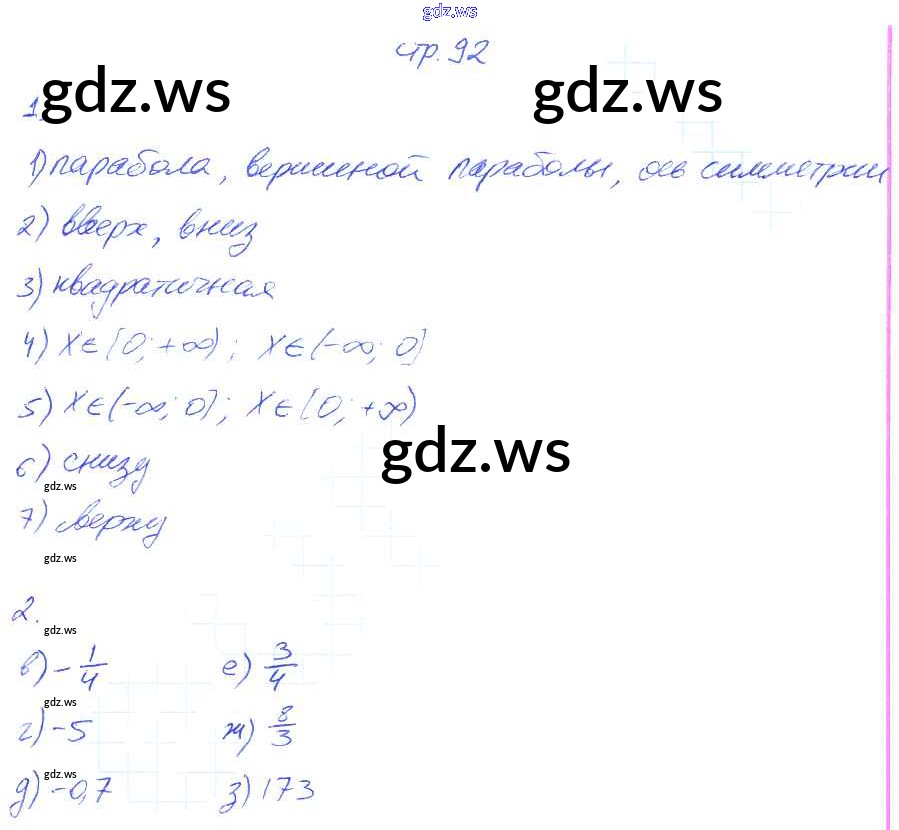 gdz.ws
стр. 92
gdz.ws gdz.ws
1.
1) парабола, вершиной параболы, ось симметрии
2) вверх, вниз
3) квадратичная
4) x∈[0; +∞); x∈(-∞; 0]
5) x∈(-∞; 0]; x∈[0; +∞)
gdz.ws
6) снизу
gdz.ws
7) сверху
gdz.ws
2.
gdz.ws
в) -1/4 е) 3/4
gdz.ws
г) -5 ж) 8/3
gdz.ws
д) -0,7 з) 173